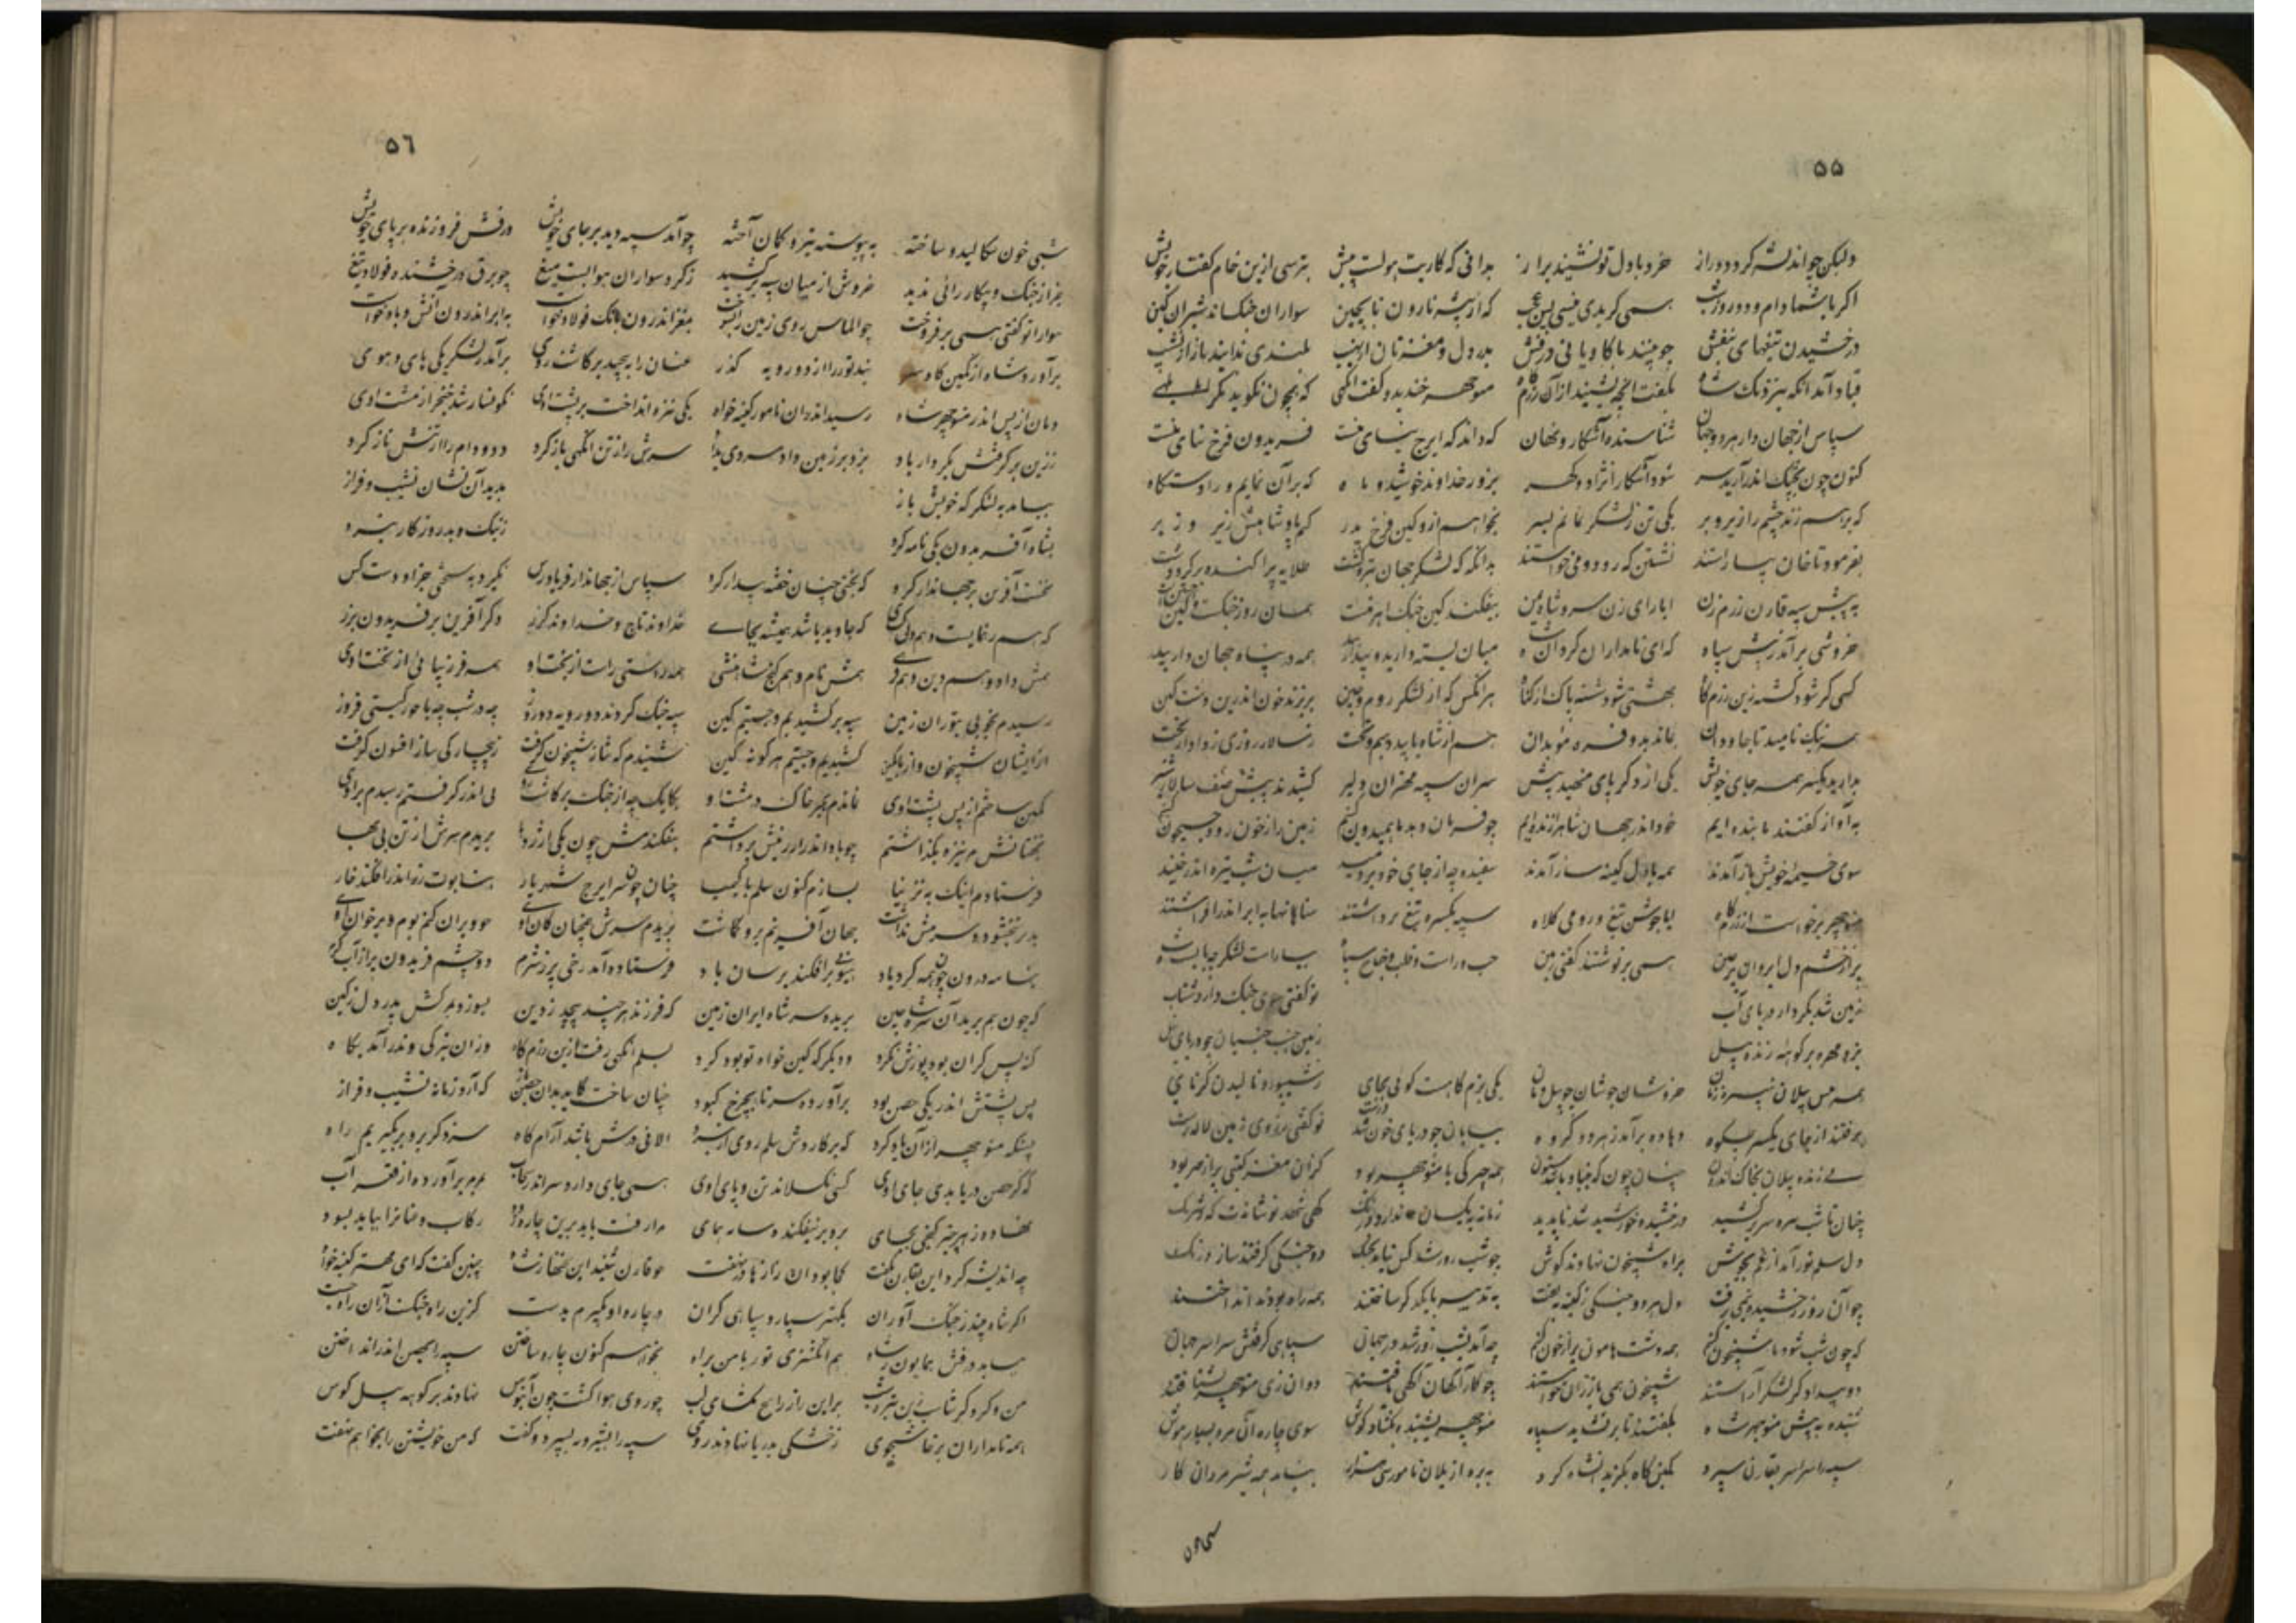 ۵۵
ولیکن چو اندیشه کردد دراز خرد با دل تو نشیند براز بدانی که کاریت هولست پیش بترسی ازین خام گفتار خویش
اگر باشما دام و دد روز و شب همی گریدی نیستی بس عجب که از بیشه نارون تا بچین سواران جنگاند شیران کین
درخشیدن تیغهای بنفش چو بینند با کاویانی درفش بدرد دل و مغزتان از نهیب بلندی ندانید باز از نشیب
قباد آمد آنکه بنزدیک شاه بگفت آنچه بشنید از آن رزم‌خواه منوچهر خندید و گفت آنگهی که چونین نگوید مگر ابلهی
سپاس از جهاندار هر دو جهان شناسنده آشکار و نهان که داند که ایرج نیای منست فریدون فرخ نیای منست
کنون چون بجنگ اندر آریم سر شود آشکارا نژاد و گهر بزور خداوند خورشید و ماه که برآن نمایم ورا دستگاه
که برهم زند چشم را زیر و بر یکی تن ز لشکر نمانم بسر بخواهم ازو کین فرخ پدر کنم پادشاهیش زیر و زبر
بفرمود تا خان بیاراستند نشستن که رود و می خواستند بدانگه که لشکر جهان تیره گشت طلایه پراکنده بر گرد دشت
به پیش سپه قارن رزم‌زن ابا رای‌زن سرو شاه یمن
خروشی برآمد ز پیش سپاه که ای نامداران گردان شاه میان بسته دارید و بیدار بید همه در پناه جهاندار بید
کسی کو شود کشته زین رزمگاه بهشتی شود شسته پاک از گناه هر آنکس که از لشکر روم و چین بریزند خون اندرین دشت کین
همه نیکنامید تا جاودان بماند بدو فره موبدان هم از شاه یابید دیهیم و تخت ز سالار روزی ز دادار بخت
بدارید یکسر همه جای خویش یکی از دگر پای منهید پیش سران سپه مهتران دلیر کشیدند پیش صف سالار شیر
به آواز گفتند ما بنده‌ایم خود اندر جهان شاه را زنده‌ایم چو فرمان دهد ما همیدون کنیم زمین را ز خون رود جیحون کنیم
سوی خیمه خویش باز آمدند همه با دل کینه ساز آمدند سفیده چو از جای خود بردمید میان شب تیره اندر خمید
منوچهر برخواست از رزمگاه ابا جوشن و تیغ و رومی کلاه سپه یکسره تیغ برداشتند سنانها به ابر اندر افراشتند
پر از خشم دل ابروان پر ز چین همی برنوشتند گفتی زمین چپ و راست و قلب و جناح سپاه بیاراست لشکر چو بایست شاه
زمین شد بکردار دریای آب تو گفتی سوی جنگ دارد شتاب
بزد مهره بر کوهه زنده پیل زمین جنب جنبان چو دریای نیل
همه پیش پیلان تبیره زنان خروشان جوشان چو پیل دمان یکی بزم گاهست گوئی بجای ز شیپور و نالیدن کرنای
برفتند از جای یکسر چو کوه دهاده برآمد ز هر دو گروه بیابان چو دریای خون شد درست تو گفتی ز روی زمین لاله رست
پی زنده پیلان بخاک اندرون چنان چون که بنیاد باشد ستون همه چیزگی با منوچهر بود کزان مغز گیتی پر از مهر بود
چنان تا شب تیره سر برکشید درخشنده خورشید شد ناپدید زمانه بیکسان ندارد درنگ گهی شهد نوشانت گه شرنگ
دل سلم تور آمد از غم بجوش براه شبیخون نهادند گوش چو شب روز شد کس نیامد بجنگ دو جنگی گرفتند ساز درنگ
چو آن روز رخشنده نیمی برفت دل هر دو جنگی ز کینه بتفت به تدبیر با یکدگر ساختند همه راه بودند انداختند
که چون شب شود ما شبیخون کنیم همه دشت هامون پر از خون کنیم چو آمد شب روز شد در جهان سیاهی گرفتش سراسر جهان
دو بیدادگر لشکر آراستند شبیخون همی باز زان خواستند چو کارآگهان آگهی یافتند دوان زی منوچهر بشتافتند
شنیده به پیش منوچهر شاه بگفتند تا برنشاند سپاه منوچهر بشنید و بگشاد گوش سوی چاره آن مرد بسیار هوش
سپه را سراسر بقارن سپرد کمین گاه بگزید شاه گرد ببرد از یلان نامور سی هزار بشاید همه شیر مردان کار
۵٦
شبی خون سکالیده و ساخته بپیوسته تیر و کمان آخته چو آمد سپه دید بر جای خویش درفش فروزنده بر پای خویش
بغیر از جنگ و پیکار رائی ندید خروش از میان سپه برکشید ز گرد سواران هوا بست میغ چو برق درخشنده فولاد تیغ
هوا را تو گفتی همی برفروخت چو الماس روی زمین را بسوخت بمغز اندرون بانگ فولاد خواست به ابر اندرون آتش و باد خواست
برآورد شاه از کمین گاه سر نبد تور را از دو رویه گذر عنان را بپیچید و برگاشت روی برآمد ز لشکر یکی های و هوی
دمان از پس اندر منوچهر شاه رسید اندر آن نامور کینه‌خواه یکی نیزه انداخت بر پشت اوی نگونسار شد خنجر از مشت اوی
ز زین برگرفتش بکردار باد بزد بر زمین داد مردی بداد سرش را ز تن آنگهی باز کرد دد و دام را از تنش ناز کرد
بیامد به لشکرگه خویش باز بدید آن نشان نشیب و فراز
بشاه آفریدون یکی نامه کرد ز نیک و بد روزگار نبرد
نخست آفرین بر جهاندار کرد که بختی چنان خفته بیدار کرد سپاس از جهاندار فریادرس نگیرد به سختی جز او دست کس
که هم رهنمایست و هم دلگشای که جاوید باشد همیشه بجای خداوند تاج و خداوند گرز دگر آفرین بر فریدون برز
همش داد و هم دین و هم فرهی همش نام و هم گنج شاهنشهی همه راستی راست از بخت او همه فر زیبائی از تخت اوی
رسیدم بخوبی بتوران زمین سپه برکشیدیم و جستیم کین سه جنگ گران کرده شد در دو روز چه در شب چه با هور گیتی فروز
از ایشان شبیخون و از ما کمین کشیدیم و جستیم هر گونه کین شنیدم که ساز شبیخون گرفت ز بیچارگی ساز افسون گرفت
کمین ساختم از پس پشت اوی نماندم بجز خاک در مشت اوی یکایک چو از جنگ برگاشت روی پی اندر گرفتم رسیدم براوی
بخفتانش بر نیزه بگذاشتم چو باد اندر از زینش برداشتم بیفکندمش چون یکی اژدها بریدم سرش از تن بی‌بها
فرستادم اینک به نزد نیا بسازم کنون سلم را کیمیا چنان چون سر ایرج شهریار بتابوت زر اندر افکند خوار
بدو بر نبخشود و شرمش نداشت جهان آفرینم برو برگماشت بریدم سرش همچنان کان اوی چو ویران کنم بوم و بر خان اوی
بنامه درون چون همه کرد یاد هیونی برافکند برسان باد فرستاده آمد رخی پر ز شرم دو چشم فریدون پر از آب گرم
که چون هم برد آن سر شاه چین بریده سر شاه ایران زمین که فرزند هر چند پیچد ز دین بسوزد بمرگش پدر دل ز کین
که پس گران بود پوزش نکرد و دیگر که کین‌خواه تو بود گرد بسلم آگهی رفت ازین رزمگاه وز آن تیرگی وندر آمد بگاه
پس پشتش اندر یکی حصن بود برآورده سر تا بچرخ کبود چنان ساخت کاید بدان حصن باز که آرد زمانه نشیب و فراز
پسنگه منوچهر از آن یاد کرد که برگاردش سلم روی از نبرد الانی درش باشد آرامگاه سزد گر برو بر بگیریم راه
که گر حصن دریا بدی جای اوی کسی نگسلاند بن و پای اوی یکی جای دارد سر اندر سحاب بچاره برآورده از قعر آب
نهاده ز هر چیز گنجی بجای برو بر نیفکنده سایه همای مرا رفت باید برین چاره زود رکاب و عنان را بباید بسود
چو اندیشه کرد این بقارن بگفت کجا بود آن رازها در نهفت چو قارن شنید این سخنها ز شاه چنین گفت کای مهتر کینه‌خواه
اگر شاه چند ز جنگ‌آوران بکهتر سپارد سپاهی گران در چاره او بگیرم بدست کزین راه جنگ و از آن راه جست
بباید درفش همایون شاه هم انگشتری تور با من براه بخواهم کنون چاره ساختن سپه را بحصن اندر انداختن
من و گرد گرشاسپ این تیره شب بر این راز راهیچ مگشای لب چو روی هوا گشت چون آبنوس نهادند بر کوهه پیل کوس
همه نامداران پرخاشجوی ز خشکی بدریا نهادند روی سپه را بشیروی بسپرد و گفت که من خویشتن را بخواهم نهفت